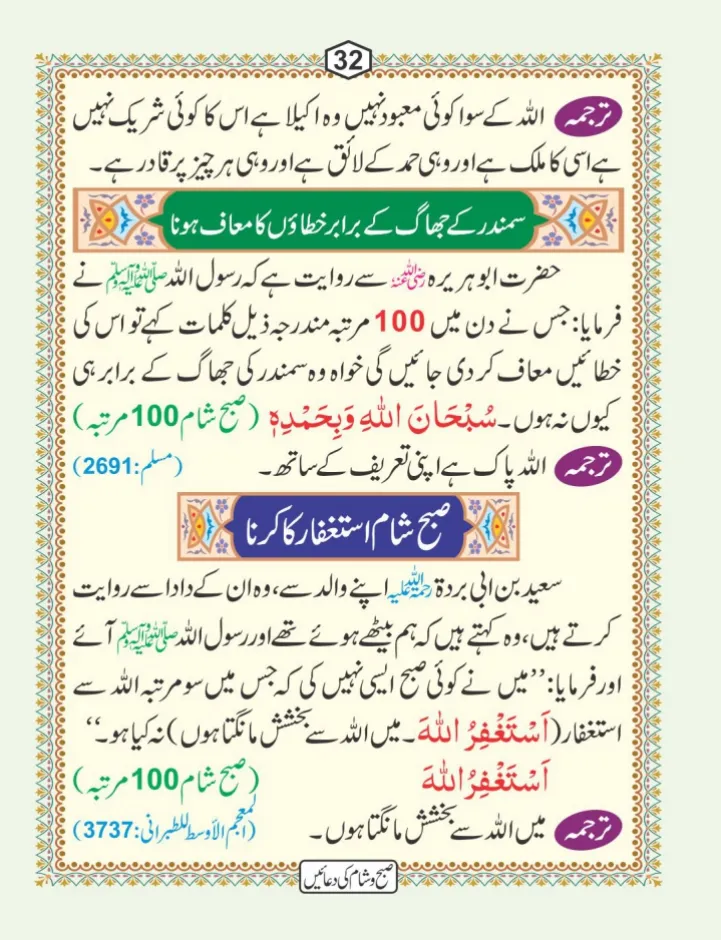 32
ترجمہ اللہ کے سوا کوئی معبود نہیں وہ اکیلا ہے اس کا کوئی شریک نہیں
ہے اسی کا ملک ہے اور وہی حمد کے لائق ہے اور وہی ہر چیز پر قادر ہے۔
سمندر کے جھاگ کے برابر خطاؤں کا معاف ہونا
حضرت ابو ہریرہ رضی اللہ عنہ سے روایت ہے کہ رسول اللہ صلی اللہ علیہ وسلم نے
فرمایا: جس نے دن میں 100 مرتبہ مندرجہ ذیل کلمات کہے تو اس کی
خطائیں معاف کر دی جائیں گی خواہ وہ سمندر کی جھاگ کے برابر ہی
کیوں نہ ہوں۔ سُبْحَانَ اللهِ وَبِحَمْدِهٖ (صبح شام 100 مرتبہ)
ترجمہ اللہ پاک ہے اپنی تعریف کے ساتھ۔ (مسلم: 2691)
صبح شام استغفار کا کرنا
سعید بن ابی بردۃ رحمۃ اللہ علیہ اپنے والد سے، وہ ان کے دادا سے روایت
کرتے ہیں، وہ کہتے ہیں کہ ہم بیٹھے ہوئے تھے اور رسول اللہ صلی اللہ علیہ وسلم آئے
اور فرمایا: ’’میں نے کوئی صبح ایسی نہیں کی کہ جس میں سو مرتبہ اللہ سے
استغفار (اَسْتَغْفِرُ اللهَ۔ میں اللہ سے بخشش مانگتا ہوں) نہ کیا ہو۔‘‘
اَسْتَغْفِرُ اللهَ (صبح شام 100 مرتبہ)
ترجمہ میں اللہ سے بخشش مانگتا ہوں۔ (المعجم الأوسط للطبرانی: 3737)
صبح و شام کی دعائیں